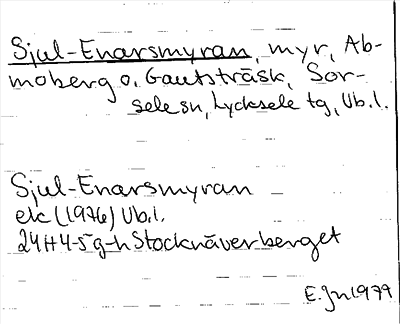 Sjul-Enarsmyran, myr, Ab-
moberg o. Gautsträsk, Sor-
sele sn, Lycksele tg, Vb.l.
Sjul-Enarsmyran
ek (1976) Vb.l.
24H4-5g-h Stocknäverberget
E.Jn 1979